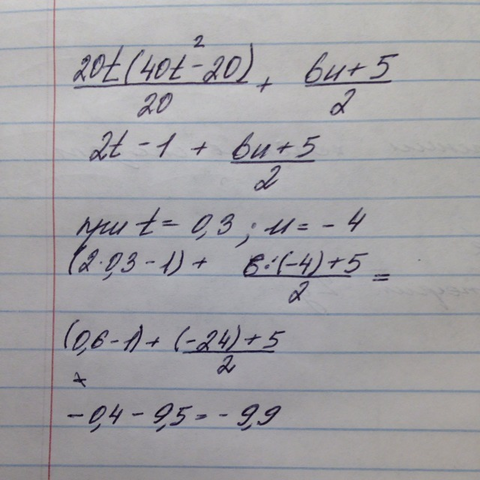 20t(40t²-20)/20 + 6u+5/2
2t - 1 + 6u+5/2
при t = 0,3 ; u = -4
(2·0,3-1) + 6·(-4)+5/2 =
(0,6-1) + (-24)+5/2
-0,4 - 9,5 = -9,9